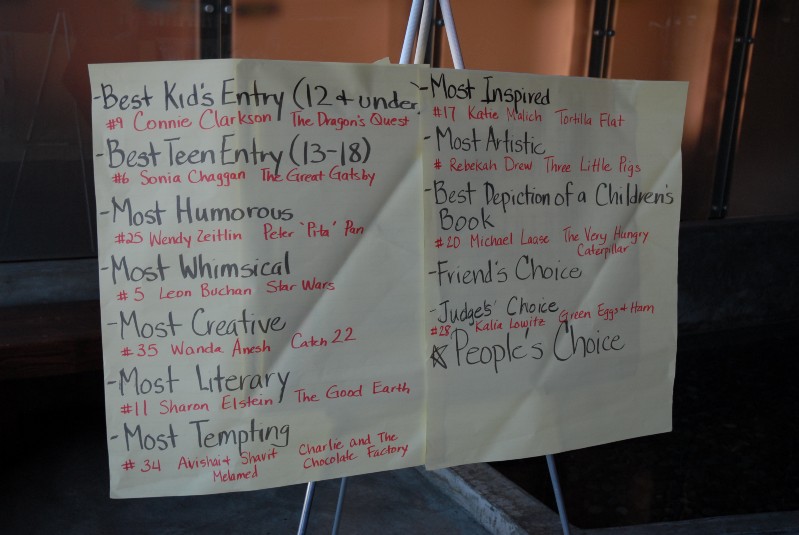 -Best Kid's Entry (12 + under
#9 Connie Clarkson The Dragon's Quest
-Best Teen Entry (13-18)
#6 Sonia Chaggan The Great Gatsby
-Most Humorous
#25 Wendy Zeitlin Peter "Pita" Pan
-Most Whimsical
#5 Leon Buchan Star Wars
-Most Creative
#35 Wanda Anesh Catch 22
-Most Literary
#11 Sharon Elstein The Good Earth
-Most Tempting
#34 Avishai + Shavit Charlie and The
Melamed Chocolate Factory
-Most Inspired
#17 Katie Malich Tortilla Flat
-Most Artistic
# Rebekah Drew Three Little Pigs
-Best Depiction of a Children's
Book
#20 Michael Laase The Very Hungry
Caterpillar
-Friend's Choice
-Judge's' Choice
#28 Kalia Lowitz Green Eggs + Ham
☆People's Choice